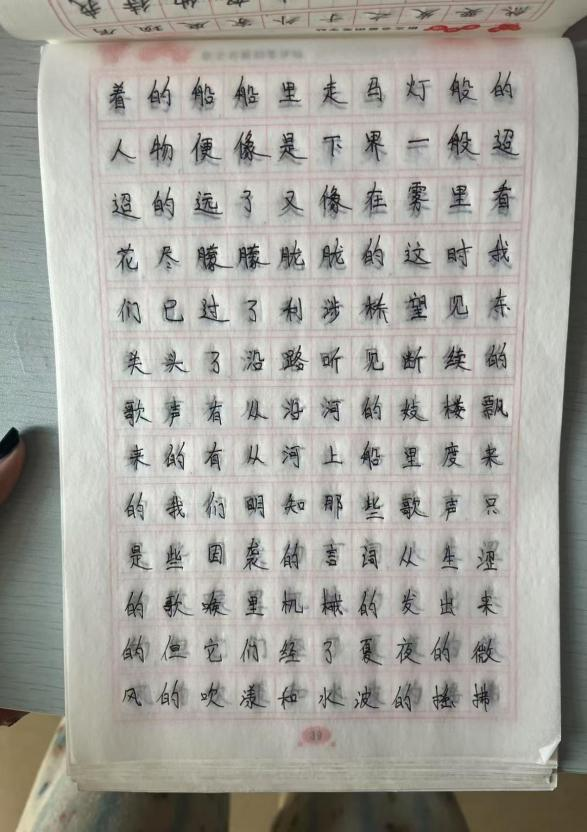 着的船船里走马灯般的
人物便像是下界一般迢
迢的远了又像在雾里看
花尽朦朦胧胧的这时我
们已过了利涉桥望见东
关头了沿路听见断续的
歌声有从沿河的妓楼飘
来的有从河上船里度来
的我们明知那些歌声只
是些因袭的言词从生涩
的歌喉里机械的发出来
的但它们经了夏夜的微
风的吹漾和水波的摇拂
39